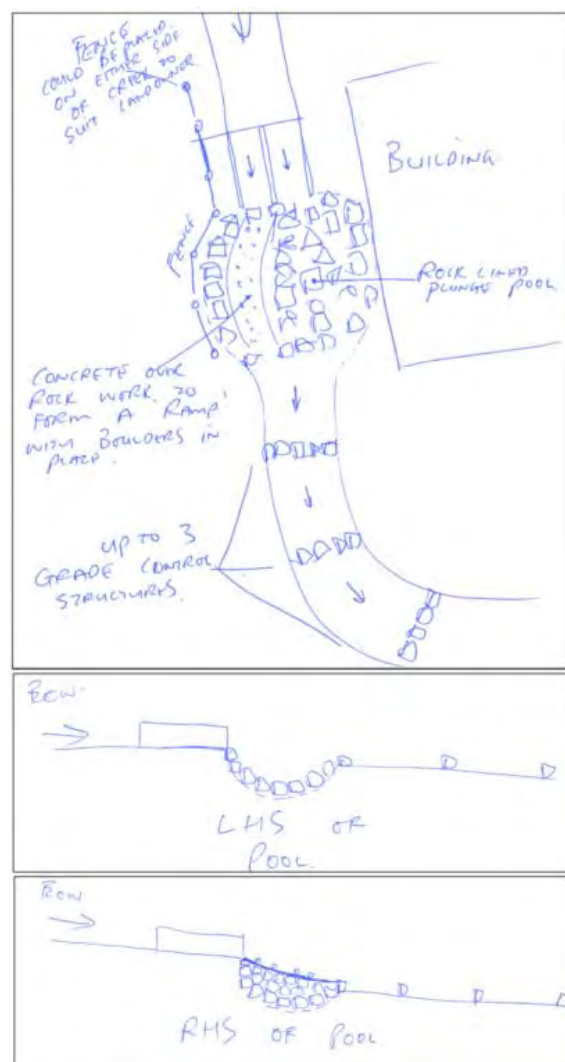 FENCE
COULD BE PLACED
ON EITHER SIDE
OF CREEK TO
SUIT LANDOWNER
BUILDING
FENCE
ROCK LINED
PLUNGE POOL
CONCRETE OVER
ROCK WORK TO
FORM A RAMP
WITH BOULDERS IN
PLACE.
UP TO 3
GRADE CONTROL
STRUCTURES.
FLOW
LHS OF
POOL
FLOW
RHS OF POOL